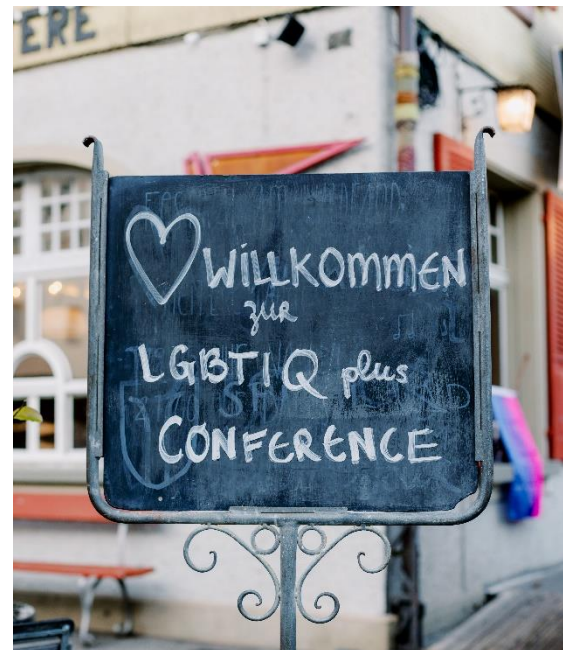 ERE
WILLKOMMEN
zur
LGBTIQ plus
CONFERENCE